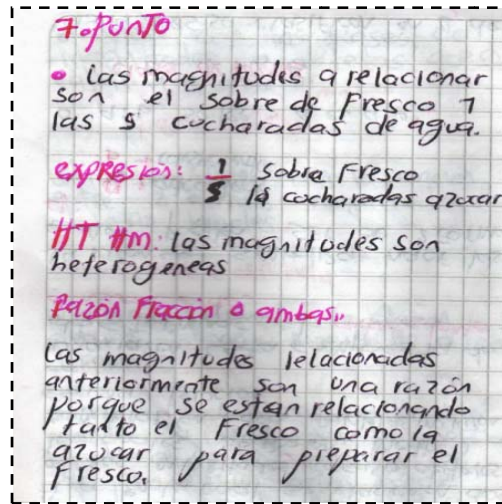 7. Punto
• las magnitudes a relacionar
son el sobre de Fresco 1
las 5 cucharadas de agua.
expresión: 1/5 sobre Fresco
la cucharadas azucar
HT Hm: las magnitudes son
heterogeneas
Razón Fracción o ambas..
las magnitudes relacionadas
anteriormente son una razón
porque se estan relacionando
tanto el Fresco como la
azucar para preparar el
Fresco.